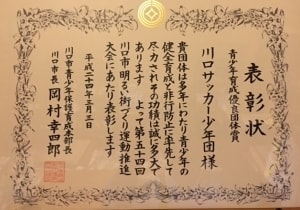 表彰状
青少年育成優良団体賞
川口サッカー少年団様
貴団体は多年にわたり青少年の
健全育成と非行防止に率先して
尽力されその功績は誠に多大で
あります よって第五十四回
川口市明るい街づくり運動推進
大会にあたり表彰します
平成二十四年三月三日
川口市青少年保護育成本部長
川口市長 岡村幸四郎